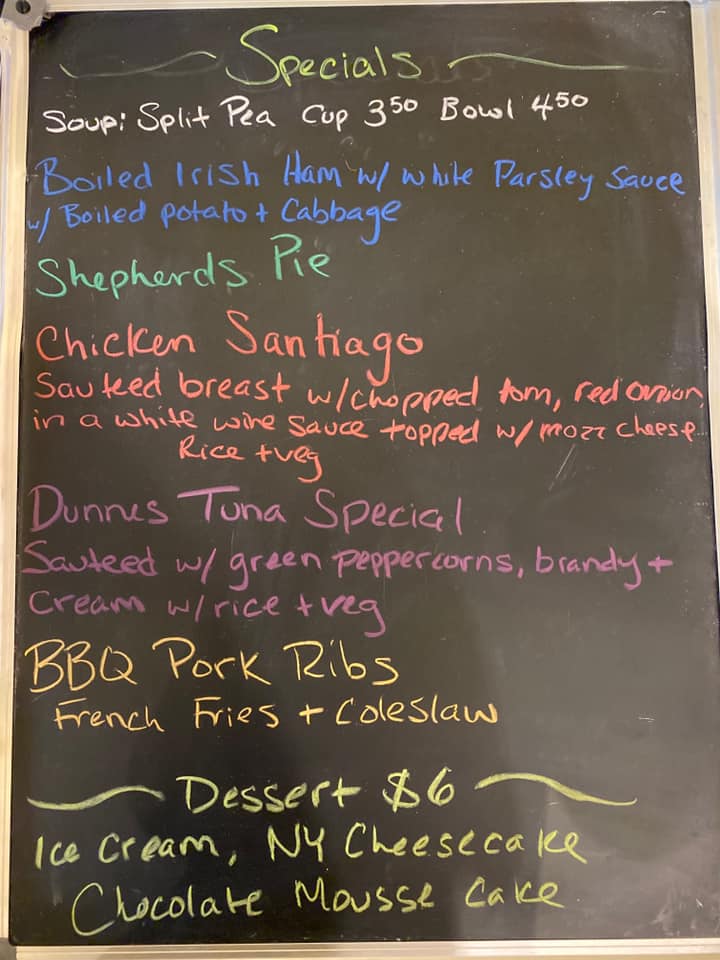 Specials
Soup: Split Pea Cup 350 Bowl 450
Boiled Irish Ham w/ white Parsley Sauce
w/ Boiled potato + Cabbage
Shepherds Pie
Chicken Santiago
Sauteed breast w/chopped tom, red onion
in a white wine sauce topped w/ mozz cheese
Rice + veg
Dunnes Tuna Special
Sauteed w/ green peppercorns, brandy +
Cream w/ rice + veg
BBQ Pork Ribs
French Fries + Coleslaw
Dessert $6
Ice Cream, NY Cheesecake
Chocolate Mousse Cake